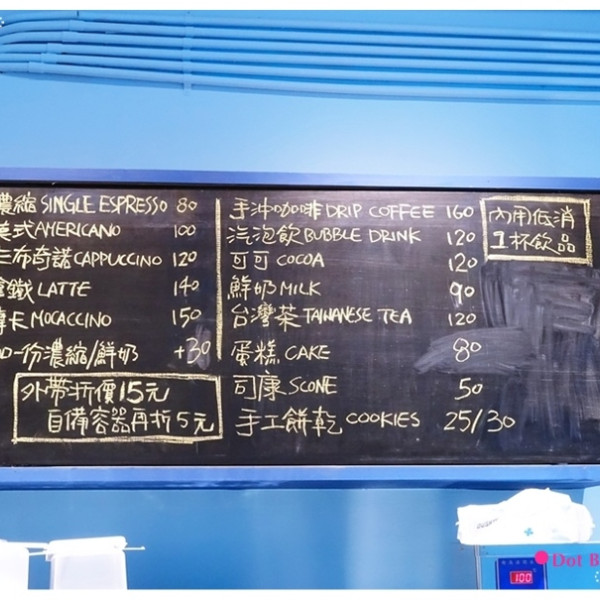 濃縮 SINGLE ESPRESSO 80
美式 AMERICANO 100
卡布奇諾 CAPPUCCINO 120
拿鐵 LATTE 140
摩卡 MOCACCINO 150
加一份濃縮/鮮奶 +30
外帶折價15元
自備容器再折5元
手沖咖啡 DRIP COFFEE 160
汽泡飲 BUBBLE DRINK 120
可可 COCOA 120
鮮奶 MILK 90
台灣茶 TAIWANESE TEA 120
蛋糕 CAKE 80
司康 SCONE 50
手工餅乾 COOKIES 25/30
內用低消
1杯飲品
100
Dot B